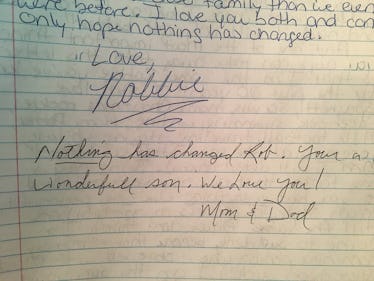 were before. I love you both and
only hope nothing has changed.
Love,
Robbie
Nothing has changed Rob. Your a
wonderfull son. We Love You!
Mom & Dad